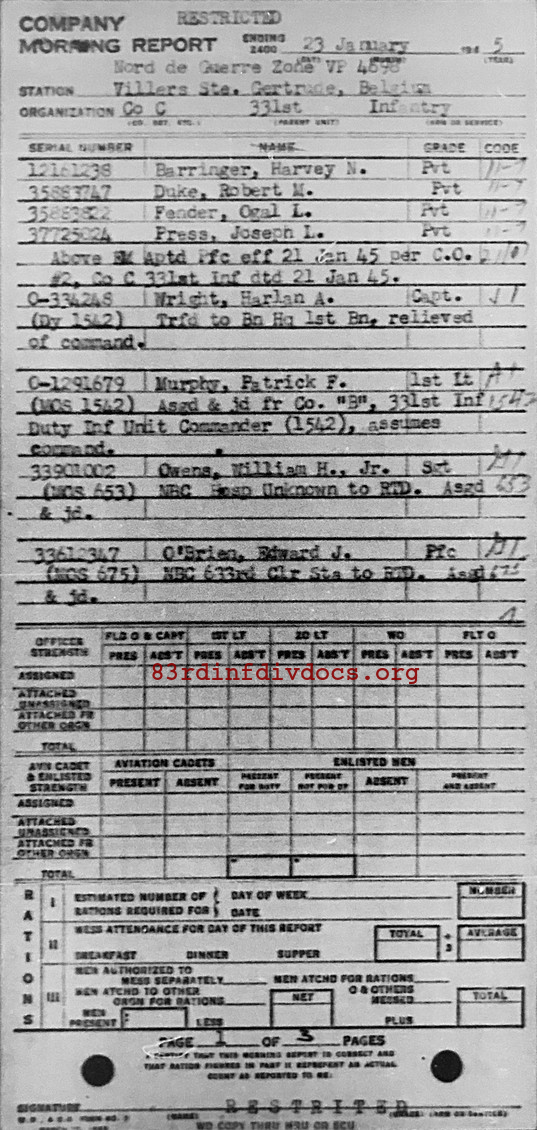 COMPANY RESTRICTED
MORNING REPORT ENDING 2400 23 January 194 5
Nord de Guerre Zone VP 4898
STATION Villers Ste. Gertrude, Belgium
ORGANIZATION Co C 331st Infantry
(CO. DET. ETC.) (PARENT UNIT) (ARM OR SERVICE)
SERIAL NUMBER NAME GRADE CODE
12161238 Barringer, Harvey N. Pvt 11-7
35883747 Duke, Robert M. Pvt 11-7
35883822 Fender, Ogal L. Pvt 11-7
37725024 Press, Joseph L. Pvt 11-7
Above EM Aptd Pfc eff 21 Jan 45 per C.O.
#2, Co C 331st Inf dtd 21 Jan 45.
O-334248 Wright, Harlan A. Capt.
(Dy 1542) Trfd to Bn Hq 1st Bn, relieved
of command.
O-1291679 Murphy, Patrick F. 1st Lt
(MOS 1542) Asgd & jd fr Co. "B", 331st Inf 1542
Duty Inf Unit Commander (1542), assumes
command.
33901002 Owens, William H., Jr. Sgt
(MOS 653) NBC Hosp Unknown to RTD. Asgd 653
& jd.
33612347 O'Brien, Edward J. Pfc
(MOS 675) NBC 633rd Clr Sta to RTD. Asgd 675
& jd.
OFFICER STRENGTH FLD O & CAPT 1ST LT 2D LT WO FLT O
PRES ABS'T PRES ABS'T PRES ABS'T PRES ABS'T PRES ABS'T
ASSIGNED
83rdinfdivdocs.org
ATTACHED UNASSIGNED
ATTACHED FR OTHER ORGN
TOTAL
AVN CADET & ENLISTED STRENGTH AVIATION CADETS ENLISTED MEN
PRESENT ABSENT PRESENT FOR DUTY PRESENT NOT FOR DY ABSENT PRESENT AND ABSENT
ASSIGNED
ATTACHED UNASSIGNED
ATTACHED FR OTHER ORGN
TOTAL
RATIONS
I ESTIMATED NUMBER OF RATIONS REQUIRED FOR DAY OF WEEK DATE NUMBER
II MESS ATTENDANCE FOR DAY OF THIS REPORT TOTAL ÷ 3 AVERAGE
BREAKFAST DINNER SUPPER
III MEN AUTHORIZED TO MESS SEPARATELY MEN ATCHD FOR RATIONS
MEN ATCHD TO OTHER ORGN FOR RATIONS NET O & OTHERS MESSED TOTAL
MEN PRESENT LESS PLUS
PAGE 1 OF 3 PAGES
I CERTIFY THAT THIS MORNING REPORT IS CORRECT AND
THAT RATION FIGURES IN PART II REPRESENT AN ACTUAL
COUNT AS REPORTED TO ME.
SIGNATURE RESTRITED
(NAME) (GRADE) (ARM OR SERVICE)
WD COPY THRU MRU OR SCU